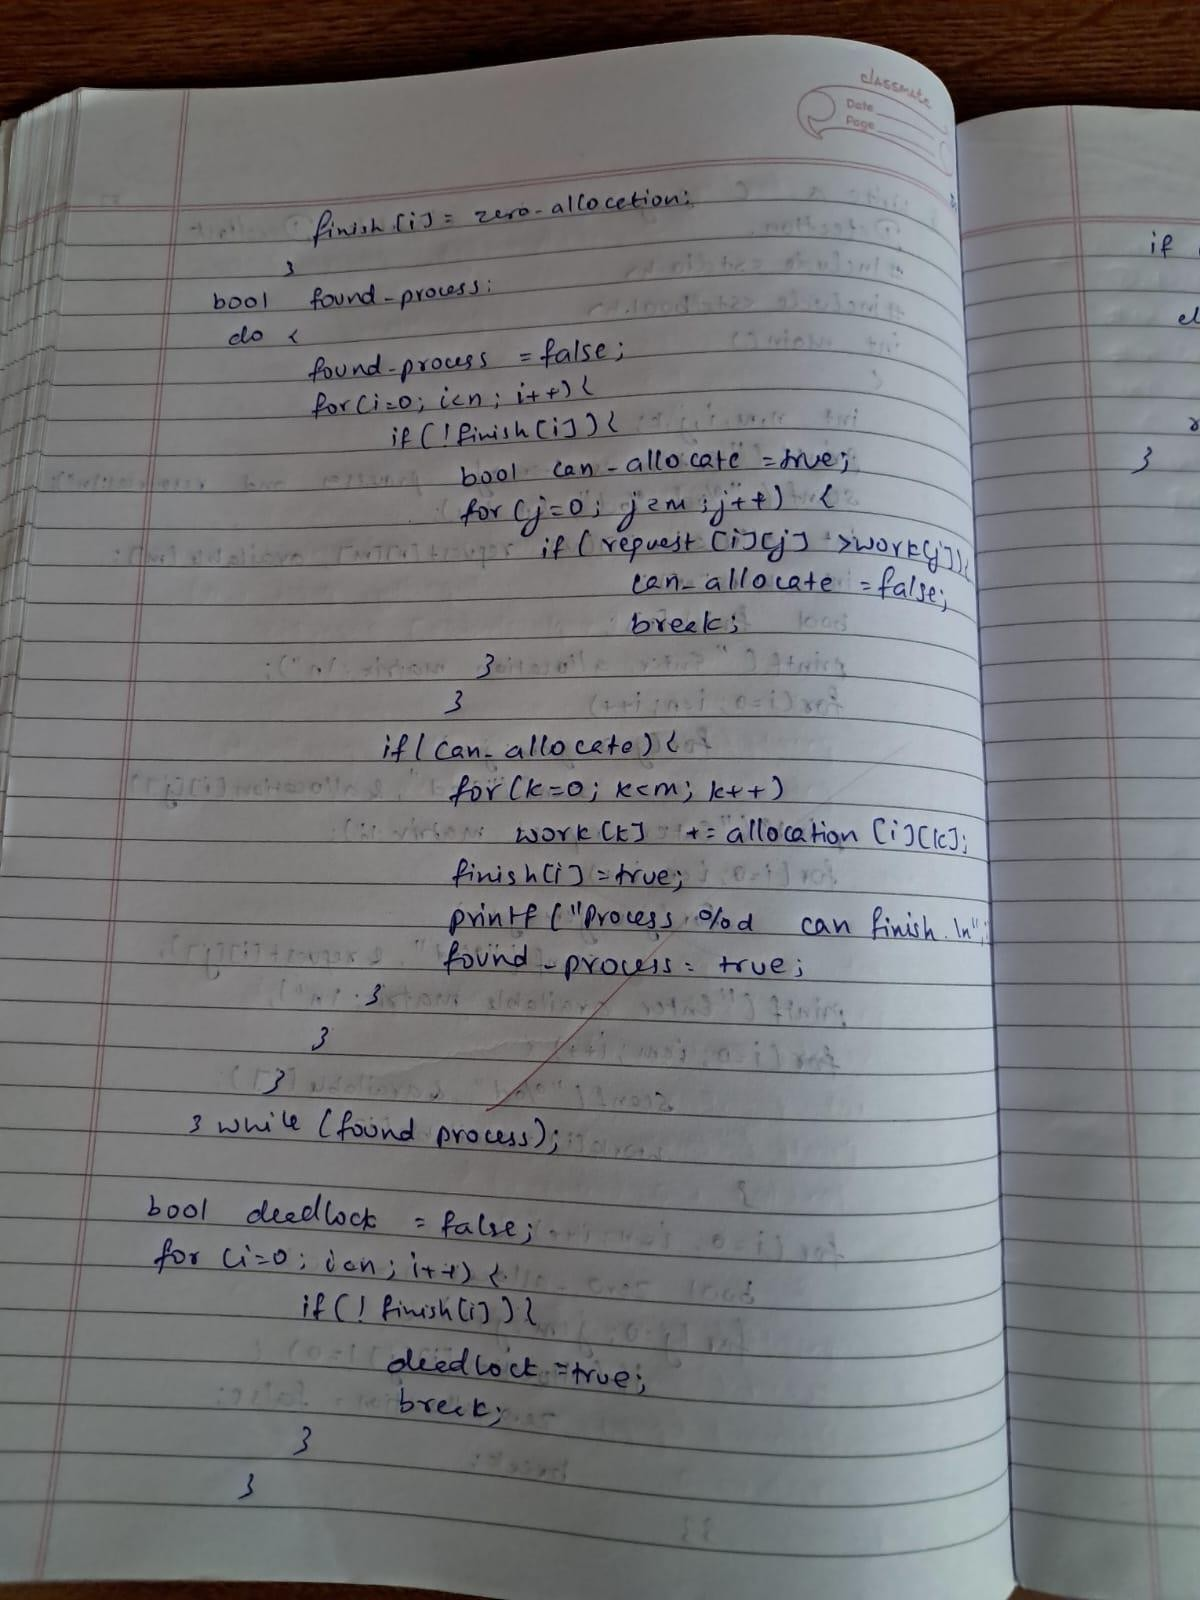 classmate
Date
Page
finish[i] = zero-allocetion;
}
bool found-process;
do {
found-process = false;
for(i=0; i<n; i++){
if(!finish[i]){
bool can-allocate = true;
for(j=0; j<m; j++) {
if(request[i][j] >work[j]){
can-allocate = false;
break;
}
}
if(can-allocate){
for(k=0; k<m; k++)
work[k] += allocation[i][k];
finish[i] = true;
printf("Process %d can finish.\n";
found-process = true;
}
}
}
} while (found process);
bool deedlock = false;
for (i=0; i<n; i++) {
if(! finish[i]){
deedlock = true;
break;
}
}
if
el
}